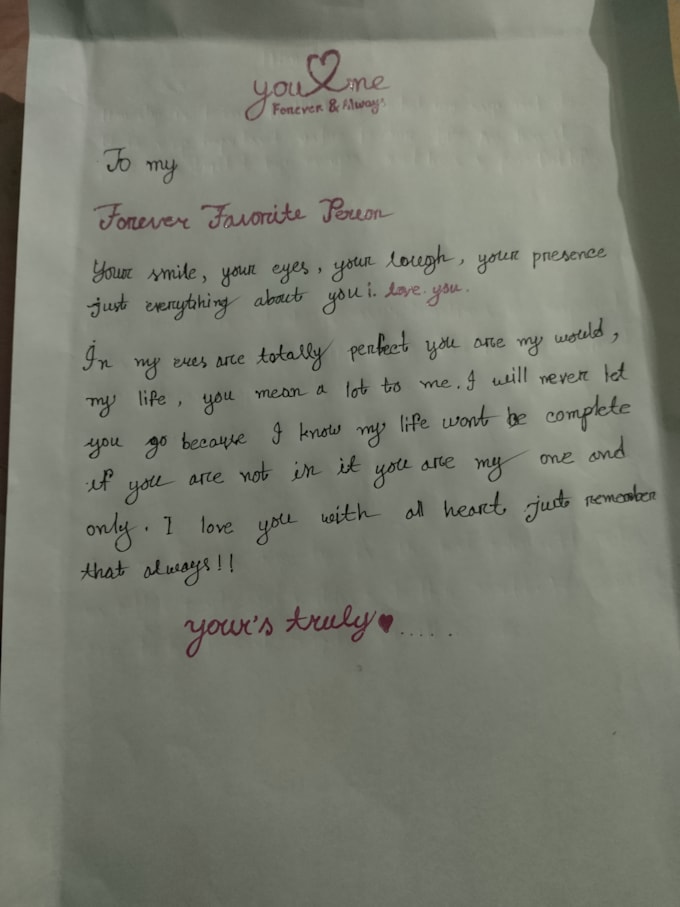 you me
Forever & Always
To my
Forever Favorite Person
Your smile, your eyes, your lough, your presence
just everything about you i. love you.
In my eyes are totally perfect you are my would,
my life, you mean a lot to me. I will never let
you go because I know my life wont be complete
if you are not in it you are my one and
only. I love you with all heart just remember
that always!!
your's truly ♥......